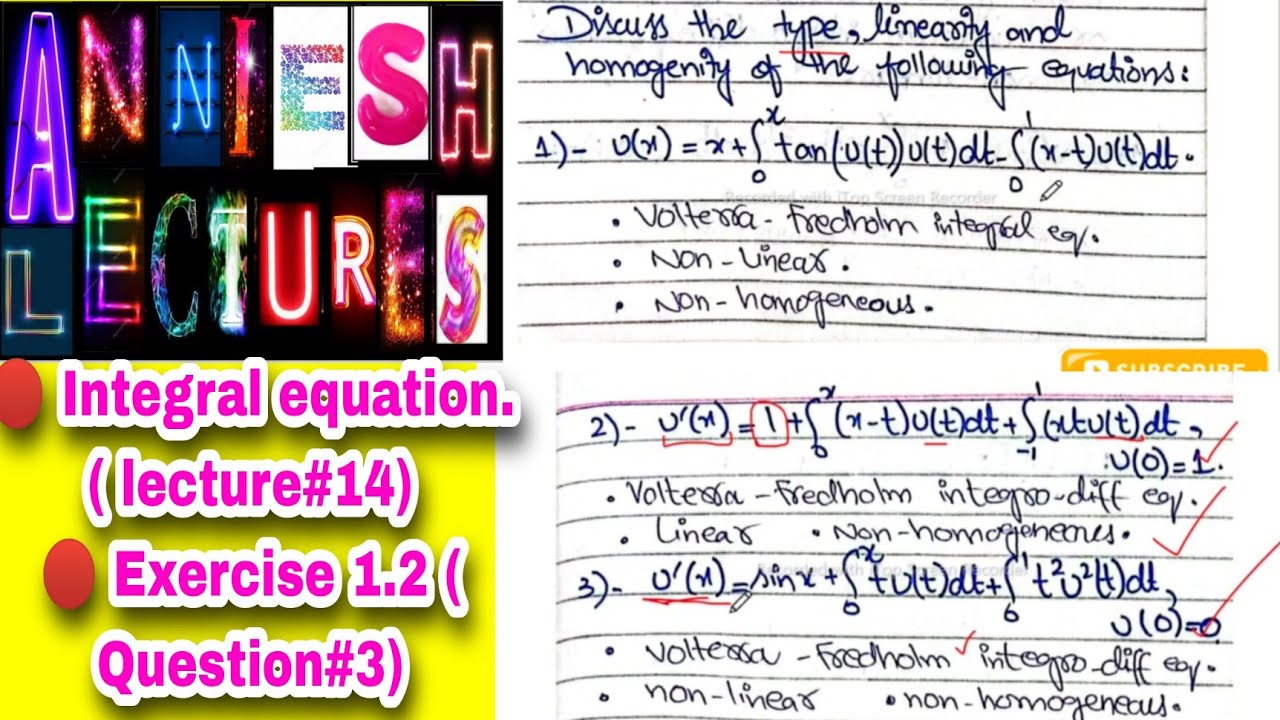 ANNIESH
LECTURES
Integral equation.
( lecture#14)
Exercise 1.2 (
Question#3)
Discuss the type, linearity and
homogenity of the following equations:
1)- u(x) = x + ∫₀ˣ tan(u(t))u(t)dt - ∫₀¹ (x-t)u(t)dt.
Recorded with iTop Screen Recorder
• Volterra - Fredholm integral eq.
• Non-Linear.
• Non-homogeneous.
SUBSCRIBE
2)- u'(x) = 1 + ∫₀ˣ (x-t)u(t)dt + ∫₋₁¹ (xtu(t)dt,
u(0)=1.
• Volterra - Fredholm integro-diff eq.
• Linear • Non-homogeneous.
3)- u'(x) = sinx + ∫₀ˣ tu(t)dt + ∫₀¹ t²u²(t)dt,
u(0)=0
• Volterra - Fredholm integro-diff eq.
• non-linear • non-homogeneous.